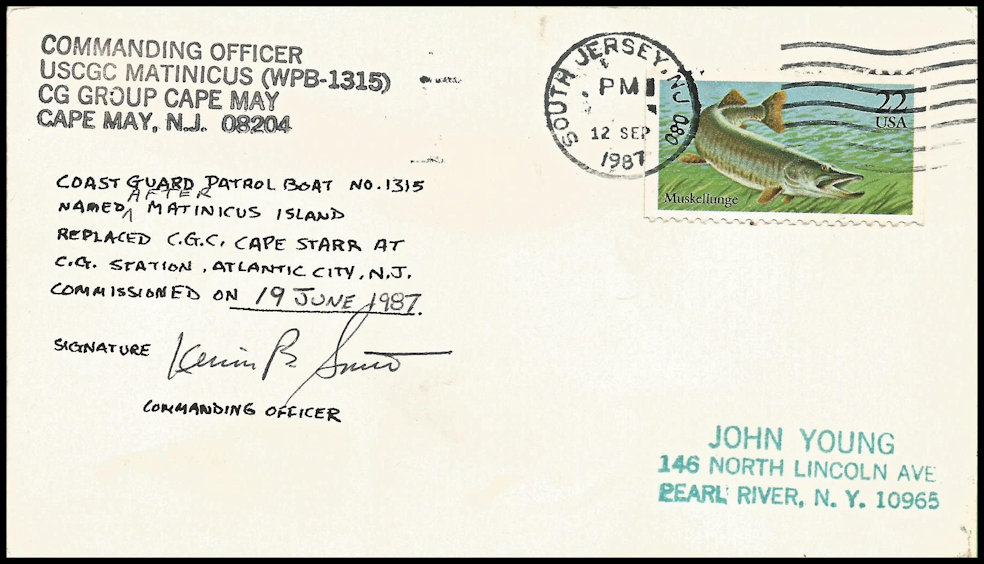 COMMANDING OFFICER
USCGC MATINICUS (WPB-1315)
CG GROUP CAPE MAY
CAPE MAY, N.J. 08204
SOUTH JERSEY, NJ 080
PM
12 SEP
1987
22
USA
Muskellunge
COAST GUARD PATROL BOAT NO. 1315
AFTER
NAMED ^ MATINICUS ISLAND
REPLACED C.G.C. CAPE STARR AT
C.G. STATION, ATLANTIC CITY, N.J.
COMMISSIONED ON 19 JUNE 1987.
SIGNATURE Kevin B.
COMMANDING OFFICER
JOHN YOUNG
146 NORTH LINCOLN AVE
PEARL RIVER, N.Y. 10965